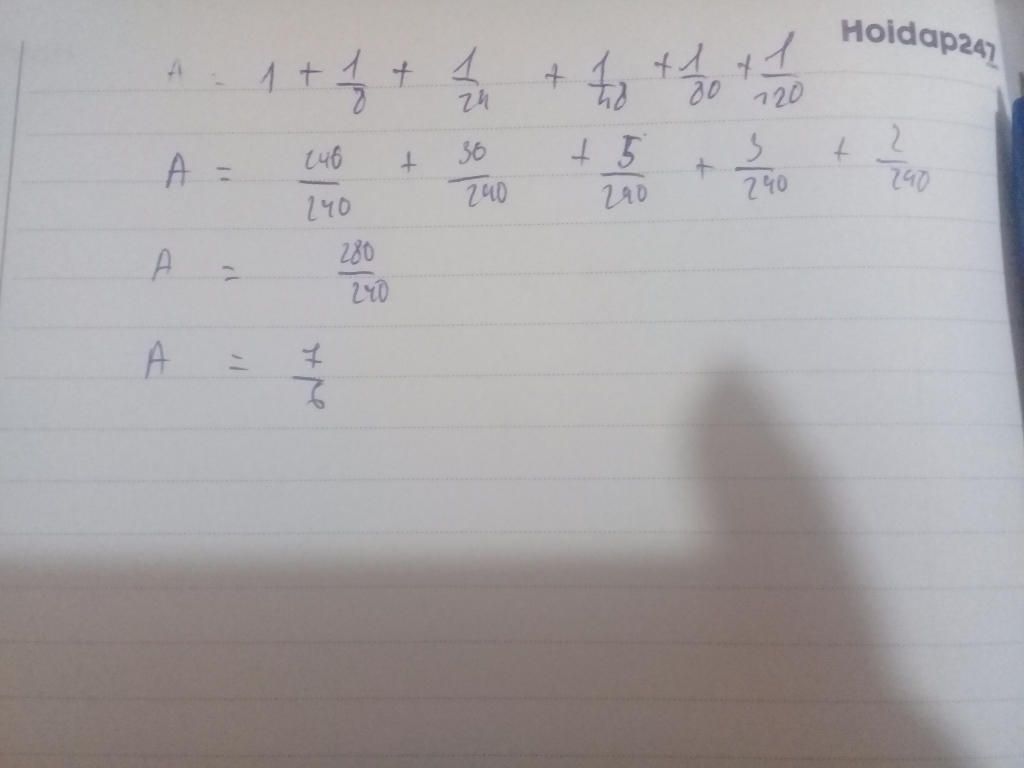 Hoidap247
A = 1 + 1/8 + 1/24 + 1/48 + 1/80 + 1/120
A = 240/240 + 30/240 + 5/240 + 3/240 + 2/240
A = 280/240
A = 7/6